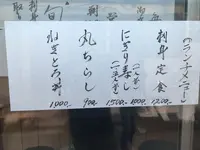 (ランチメニュー)
刺身定食 1200-
にぎり寿し (一人前) 1000-
(一.五人前) 1500-
丸ちらし 900-
ねぎとろ丼 1000-
旬